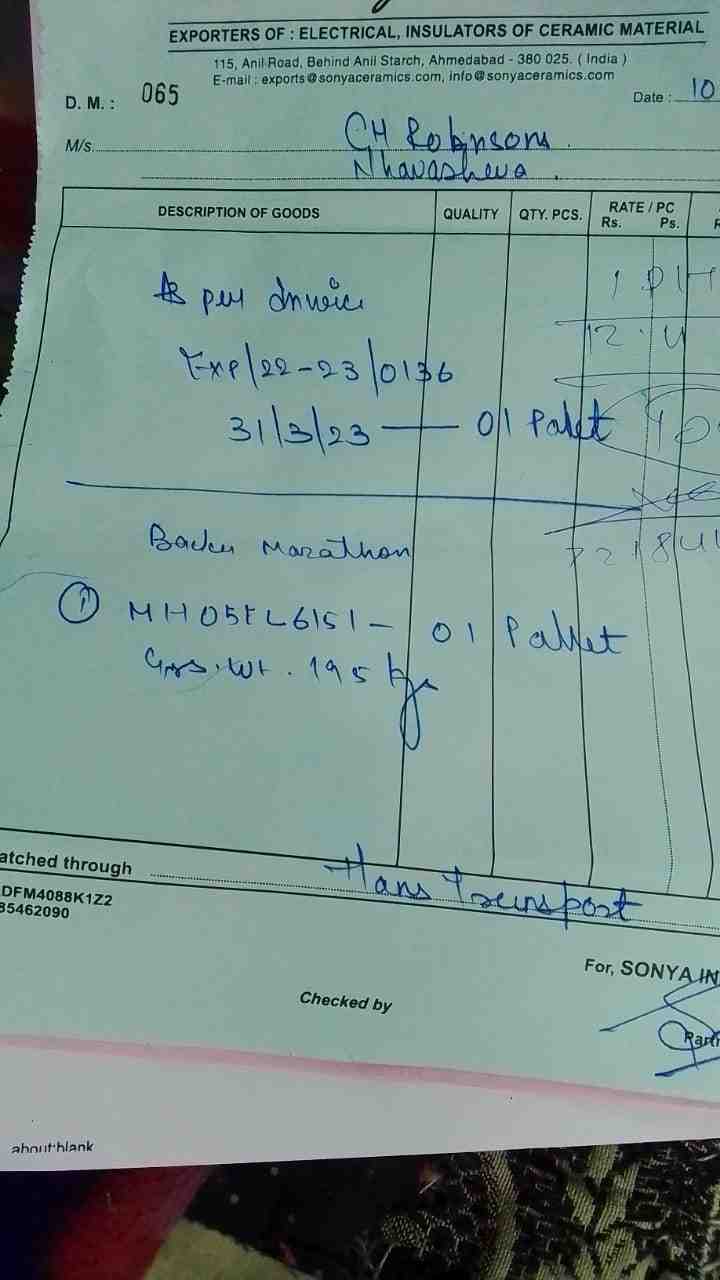 EXPORTERS OF : ELECTRICAL, INSULATORS OF CERAMIC MATERIAL
115, Anil Road, Behind Anil Starch, Ahmedabad - 380 025. ( India )
E-mail : exports@sonyaceramics.com, info@sonyaceramics.com
D. M. : 065
Date : 10
M/s. CH Robinsons
Nhavasheva
DESCRIPTION OF GOODS QUALITY QTY. PCS. RATE / PC
Rs. Ps.
As per Invoice
Exp/22-23/0136
31/3/23 — 01 Pallet
Marathon
① MH05EL6151 - 01 Pallet
Grs. Wt. 195 kgs
atched through Hans Transport
DFM4088K1Z2
35462090
For, SONYA IN
Checked by
Partn
about:blank